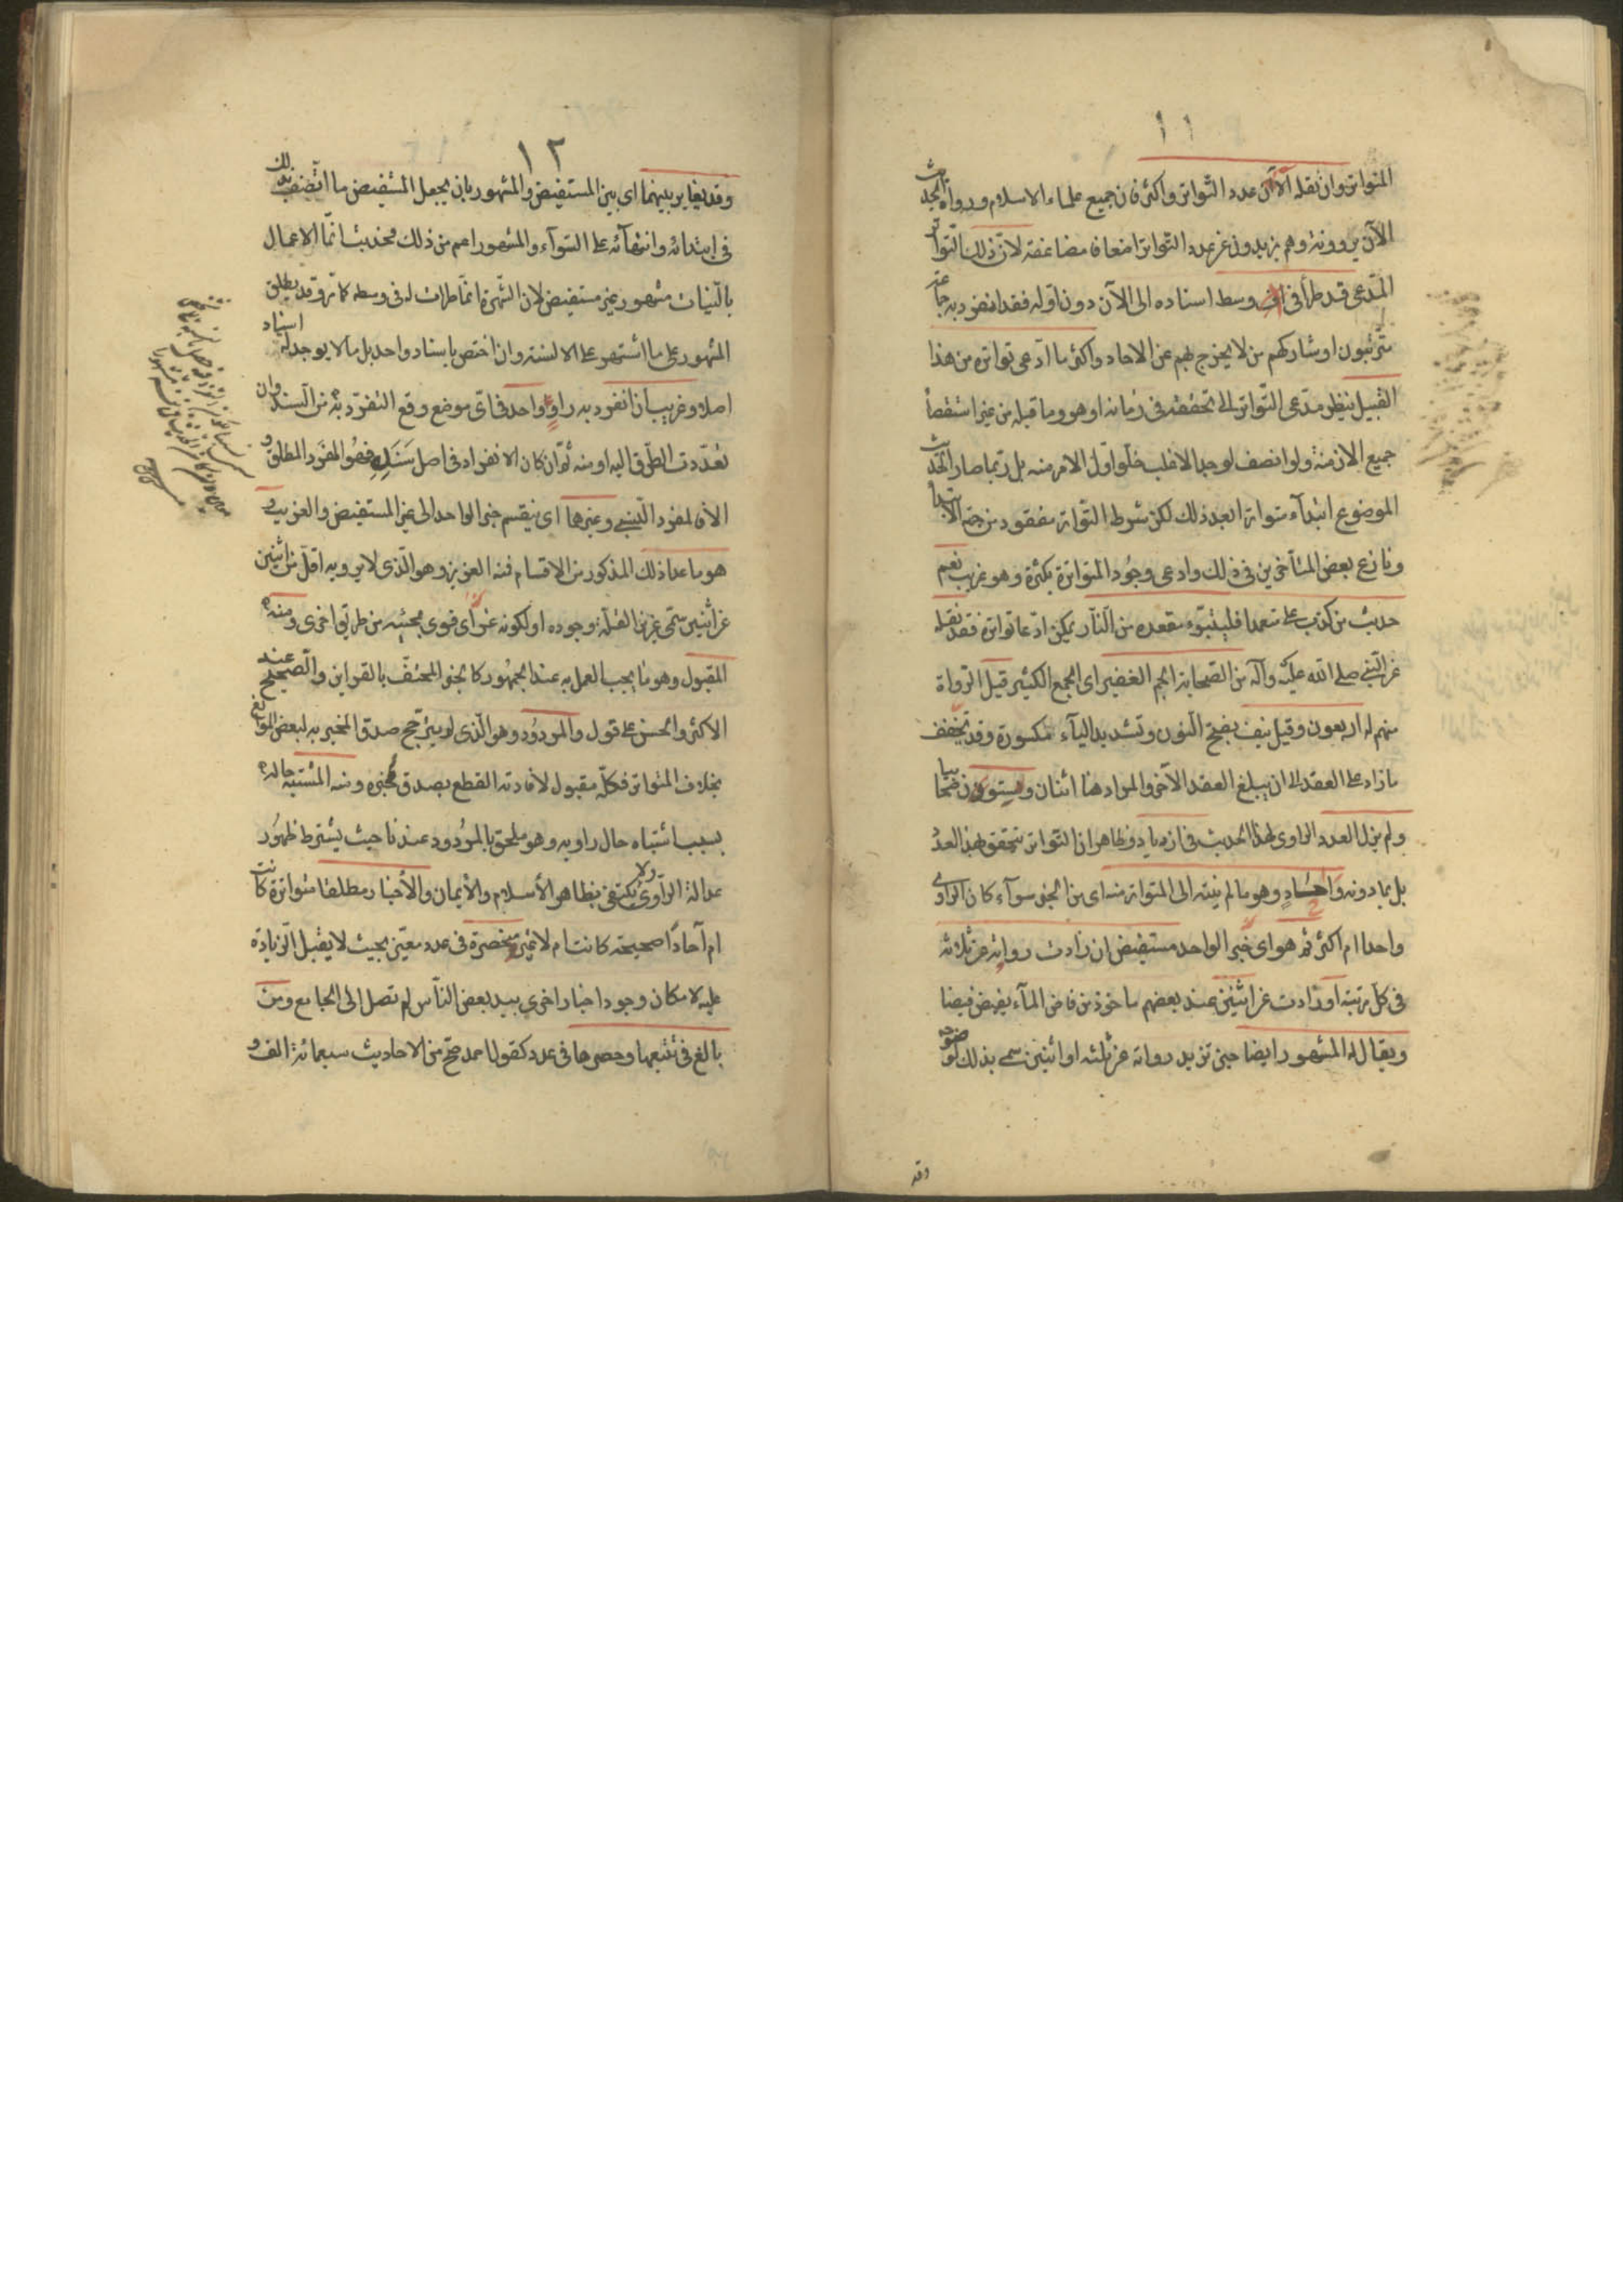 ١١
المتواتر وان نقله الآن عدد التواتر واكثر فان جميع علماء الاسلام ورواة الحديث
الآن يروونه وهم يزيدون عن عدد التواتر اضعافا مضاعفة لان ذلك التواتر
المدعى قد طرأ فى وسط اسناده الى الآن دون اوله فقد انفرد به جماعة
مترتبون او شاركهم من لا يخرج بهم عن الاحاد واكثر ما ادعى تواتره من هذا
القبيل ينظر مدعى التواتر الى تحققه فى زمانه او هو وما قبله من غير استقصاء
جميع الازمنة ولو انصف لوجد الاغلب خلو اول الامر منه بل ربما صار الحديث
الموضوع ابتدآء متواترا بعد ذلك لكن شرط التواتر مفقود من جهة الابتداء
ونازع بعض المتأخرين فى ذلك وادعى وجود المتواترة بكثرة وهو غريب نعم
حديث من كذب على متعمدا فليتبوء مقعده من النار يمكن ادعا تواتره فقد نقله
عن النبى صلى الله عليه وآله من الصحابة الجم الغفير اى الجمع الكثير قيل الرواة
منهم له اربعون وقيل نيف بفتح النون وتشديد اليآء مكسورة وقد تخفف
ما زاد على العقد الى ان يبلغ العقد الآخر والمراد هنا اثنان وستون صحابيا
ولم يزل العدد الراوى لهذا الحديث فى ازدياد وظاهر ان التواتر يتحقق بهذا العدد
بل بما دونه واحاد وهو ما لم ينته الى المتواتر منه اى من الخبر سوآء كان الراوى
واحدا ام اكثر ثم هو اى خبر الواحد مستفيض ان زادت رواته عن ثلاثة
فى كل مرتبة او زادت عن اثنين عند بعضهم ماخوذ من فاض المآء يفيض فيضا
ويقال له المشهور ايضا حين تزيد رواته عن ثلثه او اثنين سمى بذلك لوضوحه
وقد
١٢
وقد يغاير بينهما اى بين المستفيض والمشهور بان يجعل المستفيض ما اتصف بذلك
فى ابتدائه وانتهآئه على السوآء والمشهور اعم من ذلك فحديث انما الاعمال
بالنيات مشهور غير مستفيض لان الشهرة انما طرات له فى وسطه كما مر وقد يطلق
المشهور على ما اشتهر على الالسنة وان اختص باسناد واحد بل ما لا يوجد له اسناد
اصلا وغريب ان انفرد به راو واحد فى اى موضع وقع التفرد به من السند وان
تعددت الطرق اليه او منه ثم ان كان الانفراد فى اصل سنده فهو المفرد المطلق و
الا فالمفرد النسبى وغيرها اى ينقسم خبر الواحد الى غير المستفيض والغريب و
هو ما عدا ذلك المذكور من الاقسام فمنه العزيز وهو الذى لا يرويه اقل من اثنين
عن اثنين سمى عزيزا لقلة وجوده او لكونه عز اى قوى بمجيئه من طريق اخرى ومنه
المقبول وهو ما يجب العمل به عند الجمهور كالخبر المحتف بالقراين والصحيح عند
الاكثر والحسن على قول والمردود وهو الذى لم يترجح صدق المخبر به لبعض الموانع
بخلاف المتواتر فكله مقبول لافادته القطع بصدق مخبره ومنه المشتبه حاله
بسبب اشتباه حال راويه وهو ملحق بالمردود عندنا حيث يشترط ظهور
عدالة الراوى ولا يكتفى بظاهر الاسلام والايمان والاخبار مطلقا متواترة كانت
ام آحادا صحيحة كانت ام لا غير منحصرة فى عدد معين بحيث لا يقبل الزيادة
عليه لامكان وجود اخبار اخرى بيد بعض الناس لم تصل الى الجامع ومن
بالغ فى تتبعها وحصرها فى عدد كقول احمد صح من الاحاديث سبعمائة الف و